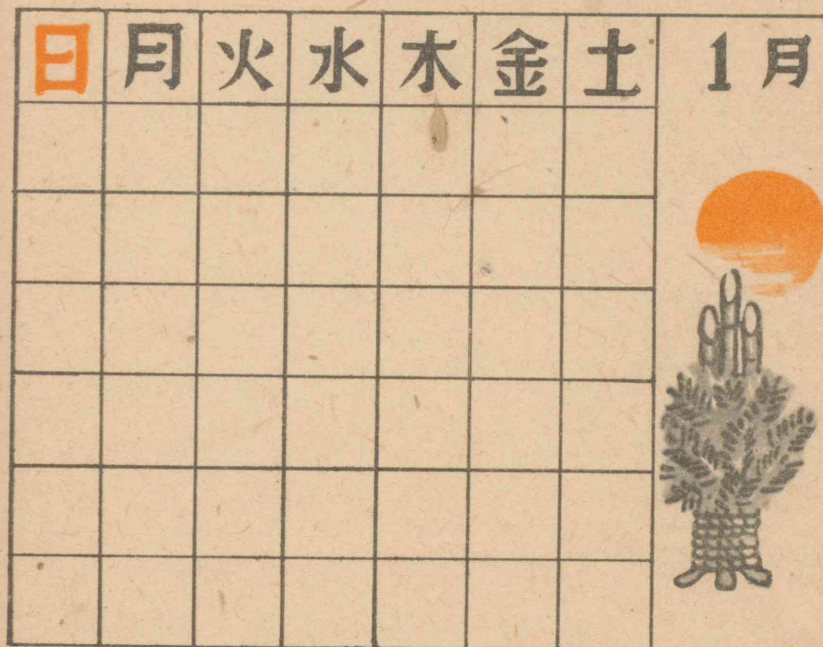 日 月 火 水 木 金 土
1月